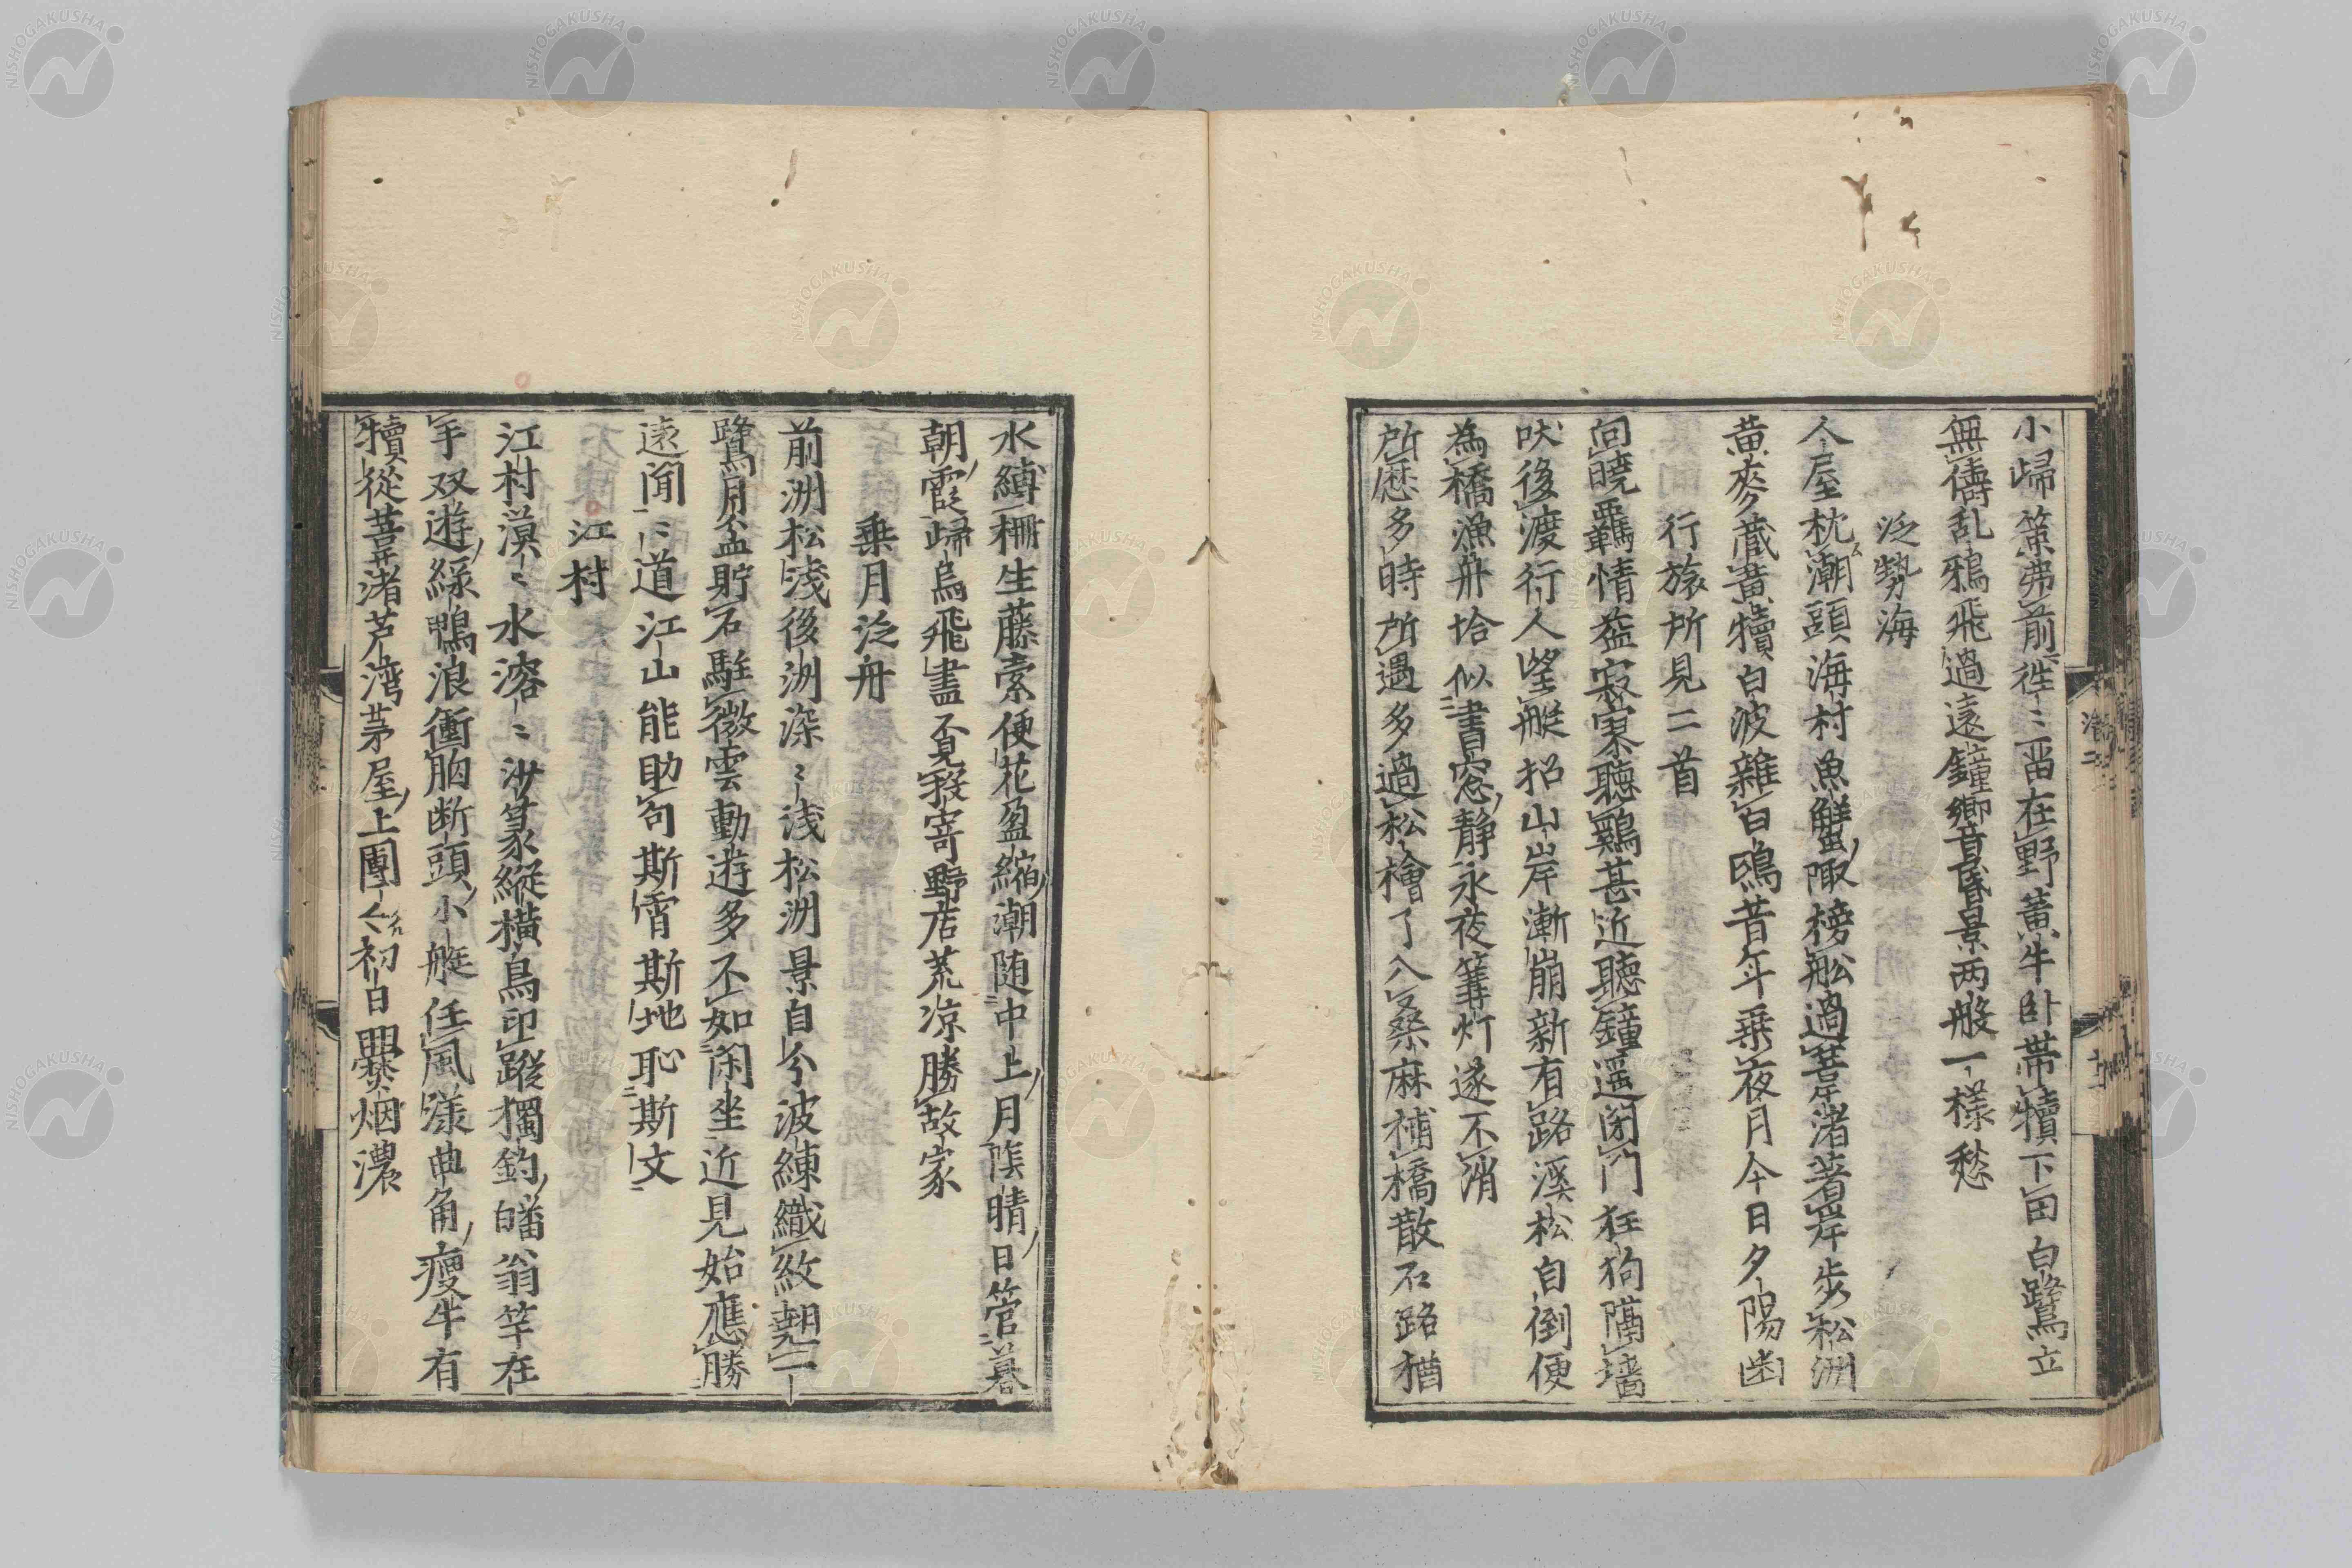 小歸策弗前徃〻畱在野黃牛卧帯犢下田白鷺立
無儔乱鴉飛過遠鐘響昏景两般一樣愁
泛勢海
人屋枕潮頭海村魚蟹陬榜舩過葦渚著岸步松洲
黄麥蔵黄犢白波雜白鷗昔年乗夜月今日夕陽
行旅所見二首
向暁羈情益寂寞聽鷄甚近聽鐘遥閉門狂狗隔墻
吠後渡行人望艇招山岸漸崩新有路溪松自倒便
為橋漁舟恰似書窓静永夜篝灯遂不消
所歴多時所遇多過松檜了入桑麻補橋散石路猶
水縛柵生藤索便花盈縮潮随中上月陰晴日管暮
朝霞歸烏飛盡不見我寄野店荒凉勝故家
乗月泛舟
前洲松浅後洲深〻浅松洲景自分波練織紋翹一
鷺月盃貯石駐微雲動遊多不如閑坐近見始應勝
遠聞〻道江山能助句斯宵斯地恥斯文
江村
江村漠〻水溶〻沙篆縦横鳥印蹤獨釣皤翁竿在
手双遊緑鴨浪衝胸断頭小艇任風漾曲角瘦牛有
犢從葦渚芦湾茅屋上團〻初日爨烟濃
NISHOGAKUSHA